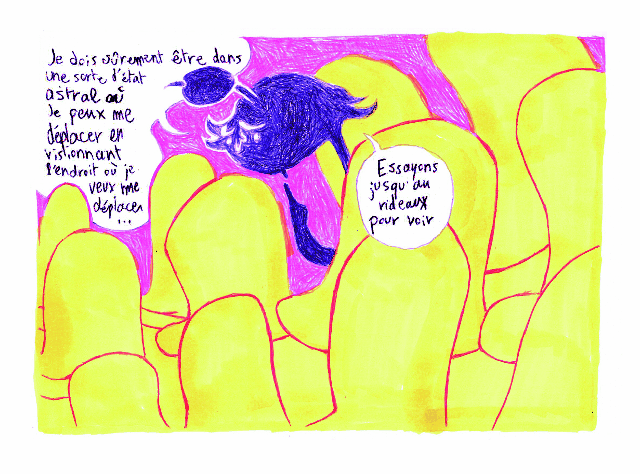 Je dois sûrement être dans
une sorte d'état
astral où
Je peux me
déplacer en
visionnant
l'endroit où je
veux me
déplacer
...
Essayons
jusqu'au
rideaux
pour voir